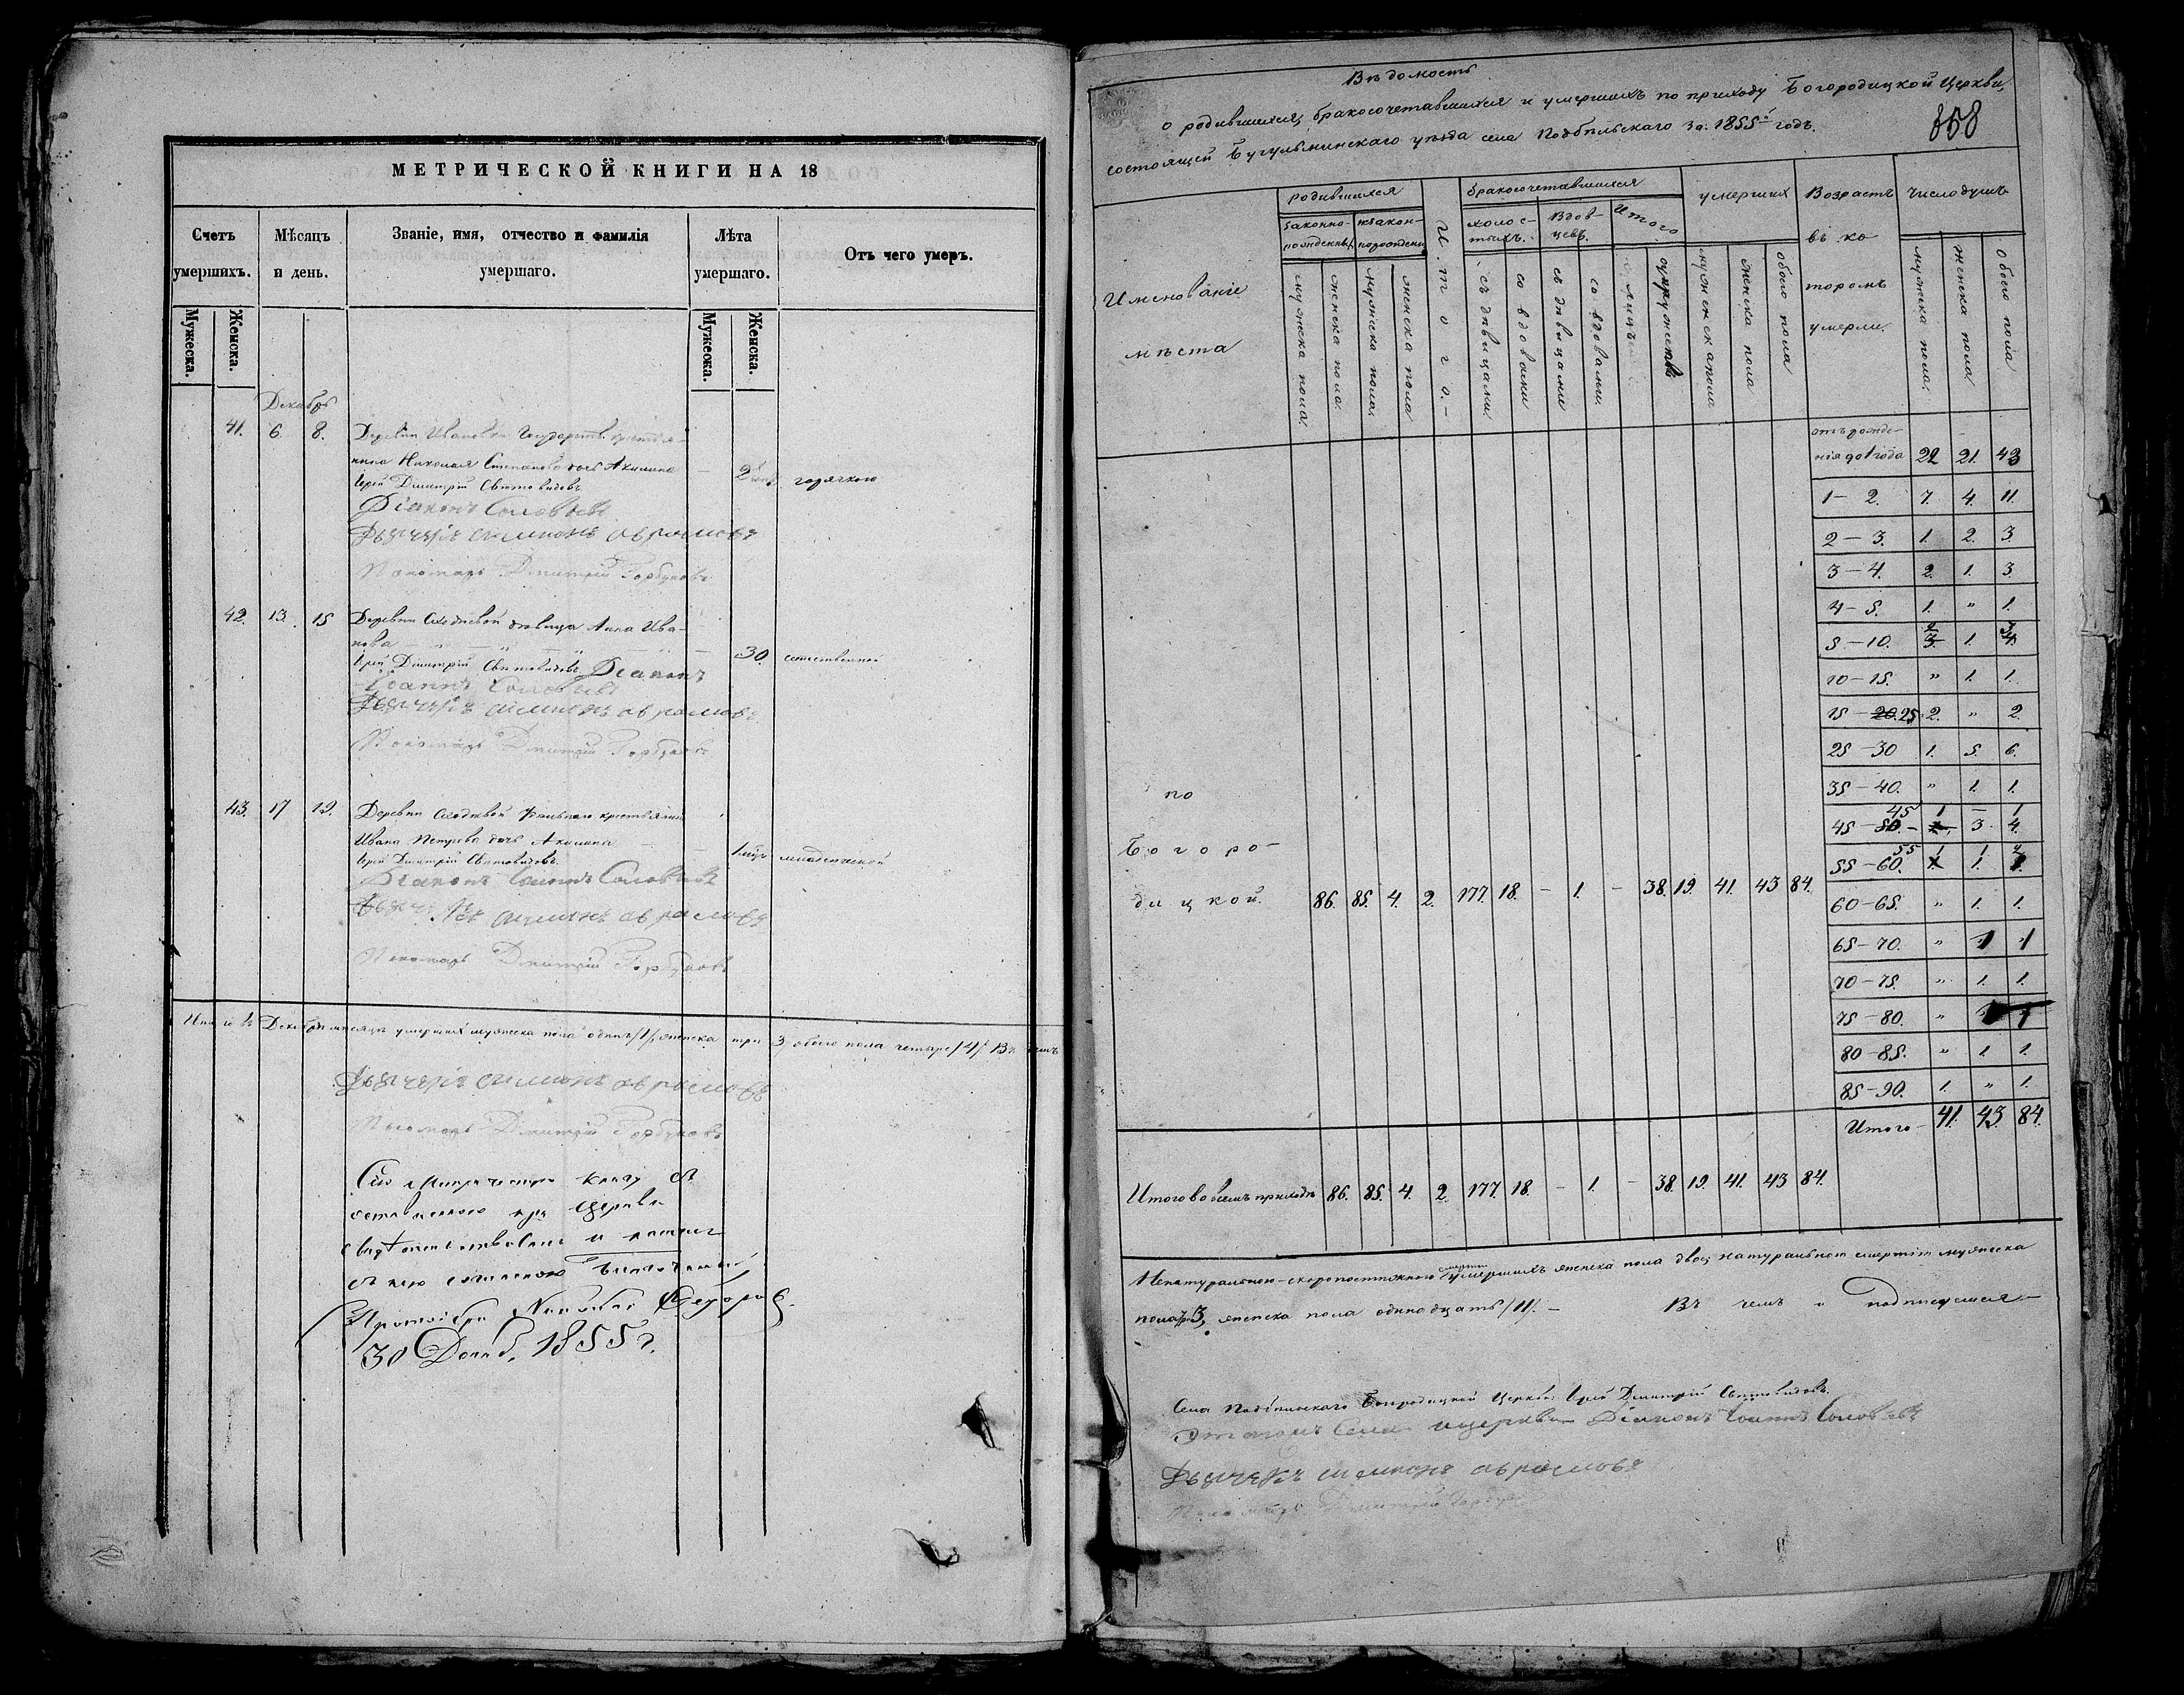 МЕТРИЧЕСКОЙ КНИГИ НА 18
Счетъ умершихъ.
Мѣсяцъ и день.
Званіе, имя, отчество и фамилія умершаго.
Лѣта умершаго.
Отъ чего умеръ.
Мужеска.
Женска.
Мужеска.
Женска.
Декабрь
41. 6. 8. Деревни Ивановки Государств. крестья-
нина Николая Степанова дочь Акилина — 2 горячкою
Іерей Димитрій Свѣтовидовъ
Діаконъ Соловьевъ
Дьячекъ Симионъ Аврамовъ
Пономарь Дмитрій Горбуновъ
42. 13. 15 Деревни Сходневой дѣвица Анна Ива-
нова — 30. естественной
Іерей Димитрій Свѣтовидовъ Діаконъ
Іоаннъ Соловьевъ
Дьячекъ Симионъ Аврамовъ
Пономарь Дмитрій Горбуновъ
43. 17 19. Деревни Сходневой крестьянина
Ивана Петрова дочь Акилина — младенческой
Іерей Димитрій Свѣтовидовъ.
Діаконъ Іоаннъ Соловьевъ
Дьячекъ Симионъ Аврамовъ
Пономарь Дмитрій Горбуновъ
Итого въ Декабрѣ мѣсяцѣ умершихъ мужеска пола одинъ /1/, женска три 3, обоего пола четыре /4/. Въ чемъ
Дьячекъ Симионъ Аврамовъ
Пономарь Дмитрій Горбуновъ
Сію Метрическую книгу съ
оставленною при Церкви
свидѣтельствовалъ и
съ нею
Федоровъ.
30 Декаб. 1855 г.
Вѣдомость
о родившихся, бракосочетавшихся и умершихъ по приходу Богородицкой Церкви,
состоящей Бугульминскаго уѣзда села Подбѣльскаго за 1855й годъ.
858
Именованіе мѣста
родившихся
законно-рожденны.
незакон-норожденн.
мужска пола.
женска пола.
мужска пола.
женска пола
Итого.-
бракосочетавшихся
холос-тыхъ.
Вдов-цевъ.
Итого
съ дѣвицами.
со вдовами
съ дѣвицами
со вдовами.
лицъ
супружествъ
умершихъ
мужеска пола
женска пола
обоего пола
Возрастъ въ ко торомъ умерли.
число душъ
мужска пола.
женска пола
обоего пола
отъ рожде-
нія до 1 года 22 21. 43
1 — 2. 7. 4. 11.
2 — 3. 1. 2. 3.
3 — 4. 2. 1. 3.
4 — 5. 1. " 1.
5 — 10. 2 3. 1. 3 4.
10 — 15. " 1. 1.
15 — 20. 25 2. " 2.
25 — 30 1. 5. 6.
35 — 40. " 1. 1.
45 1 — 1
45 — 50. — 3. 4.
55 1 1
55 — 60. 1.
60 — 65. " 1. 1.
65 — 70. " 1 1
70 — 75. " 1. 1.
75 — 80. "
80 — 85. " 1. 1.
85 — 90. 1. " 1.
Итого — 41. 43. 84.
по
Богоро-
дицкой. 86. 85. 4. 2. 177. 18. — 1. — 38. 19. 41. 43 84.
Итого во всемъ приходѣ 86. 85. 4. 2. 177. 18. — 1. — 38. 19. 41. 43 84.
Ненатуральною — скоропостижною смертію умершихъ женска пола двое, натуральною смертію мужеска
пола 3, женска пола одинадцать /11/. — Въ чемъ и подписуемся —
Села Подбѣльскаго Богородицкой Церкви Іерей Димитрій Свѣтовидовъ.
Церкви Діаконъ Іоаннъ Соловьевъ
Дьячекъ Симионъ Аврамовъ
Пономарь Дмитрій Горбуновъ